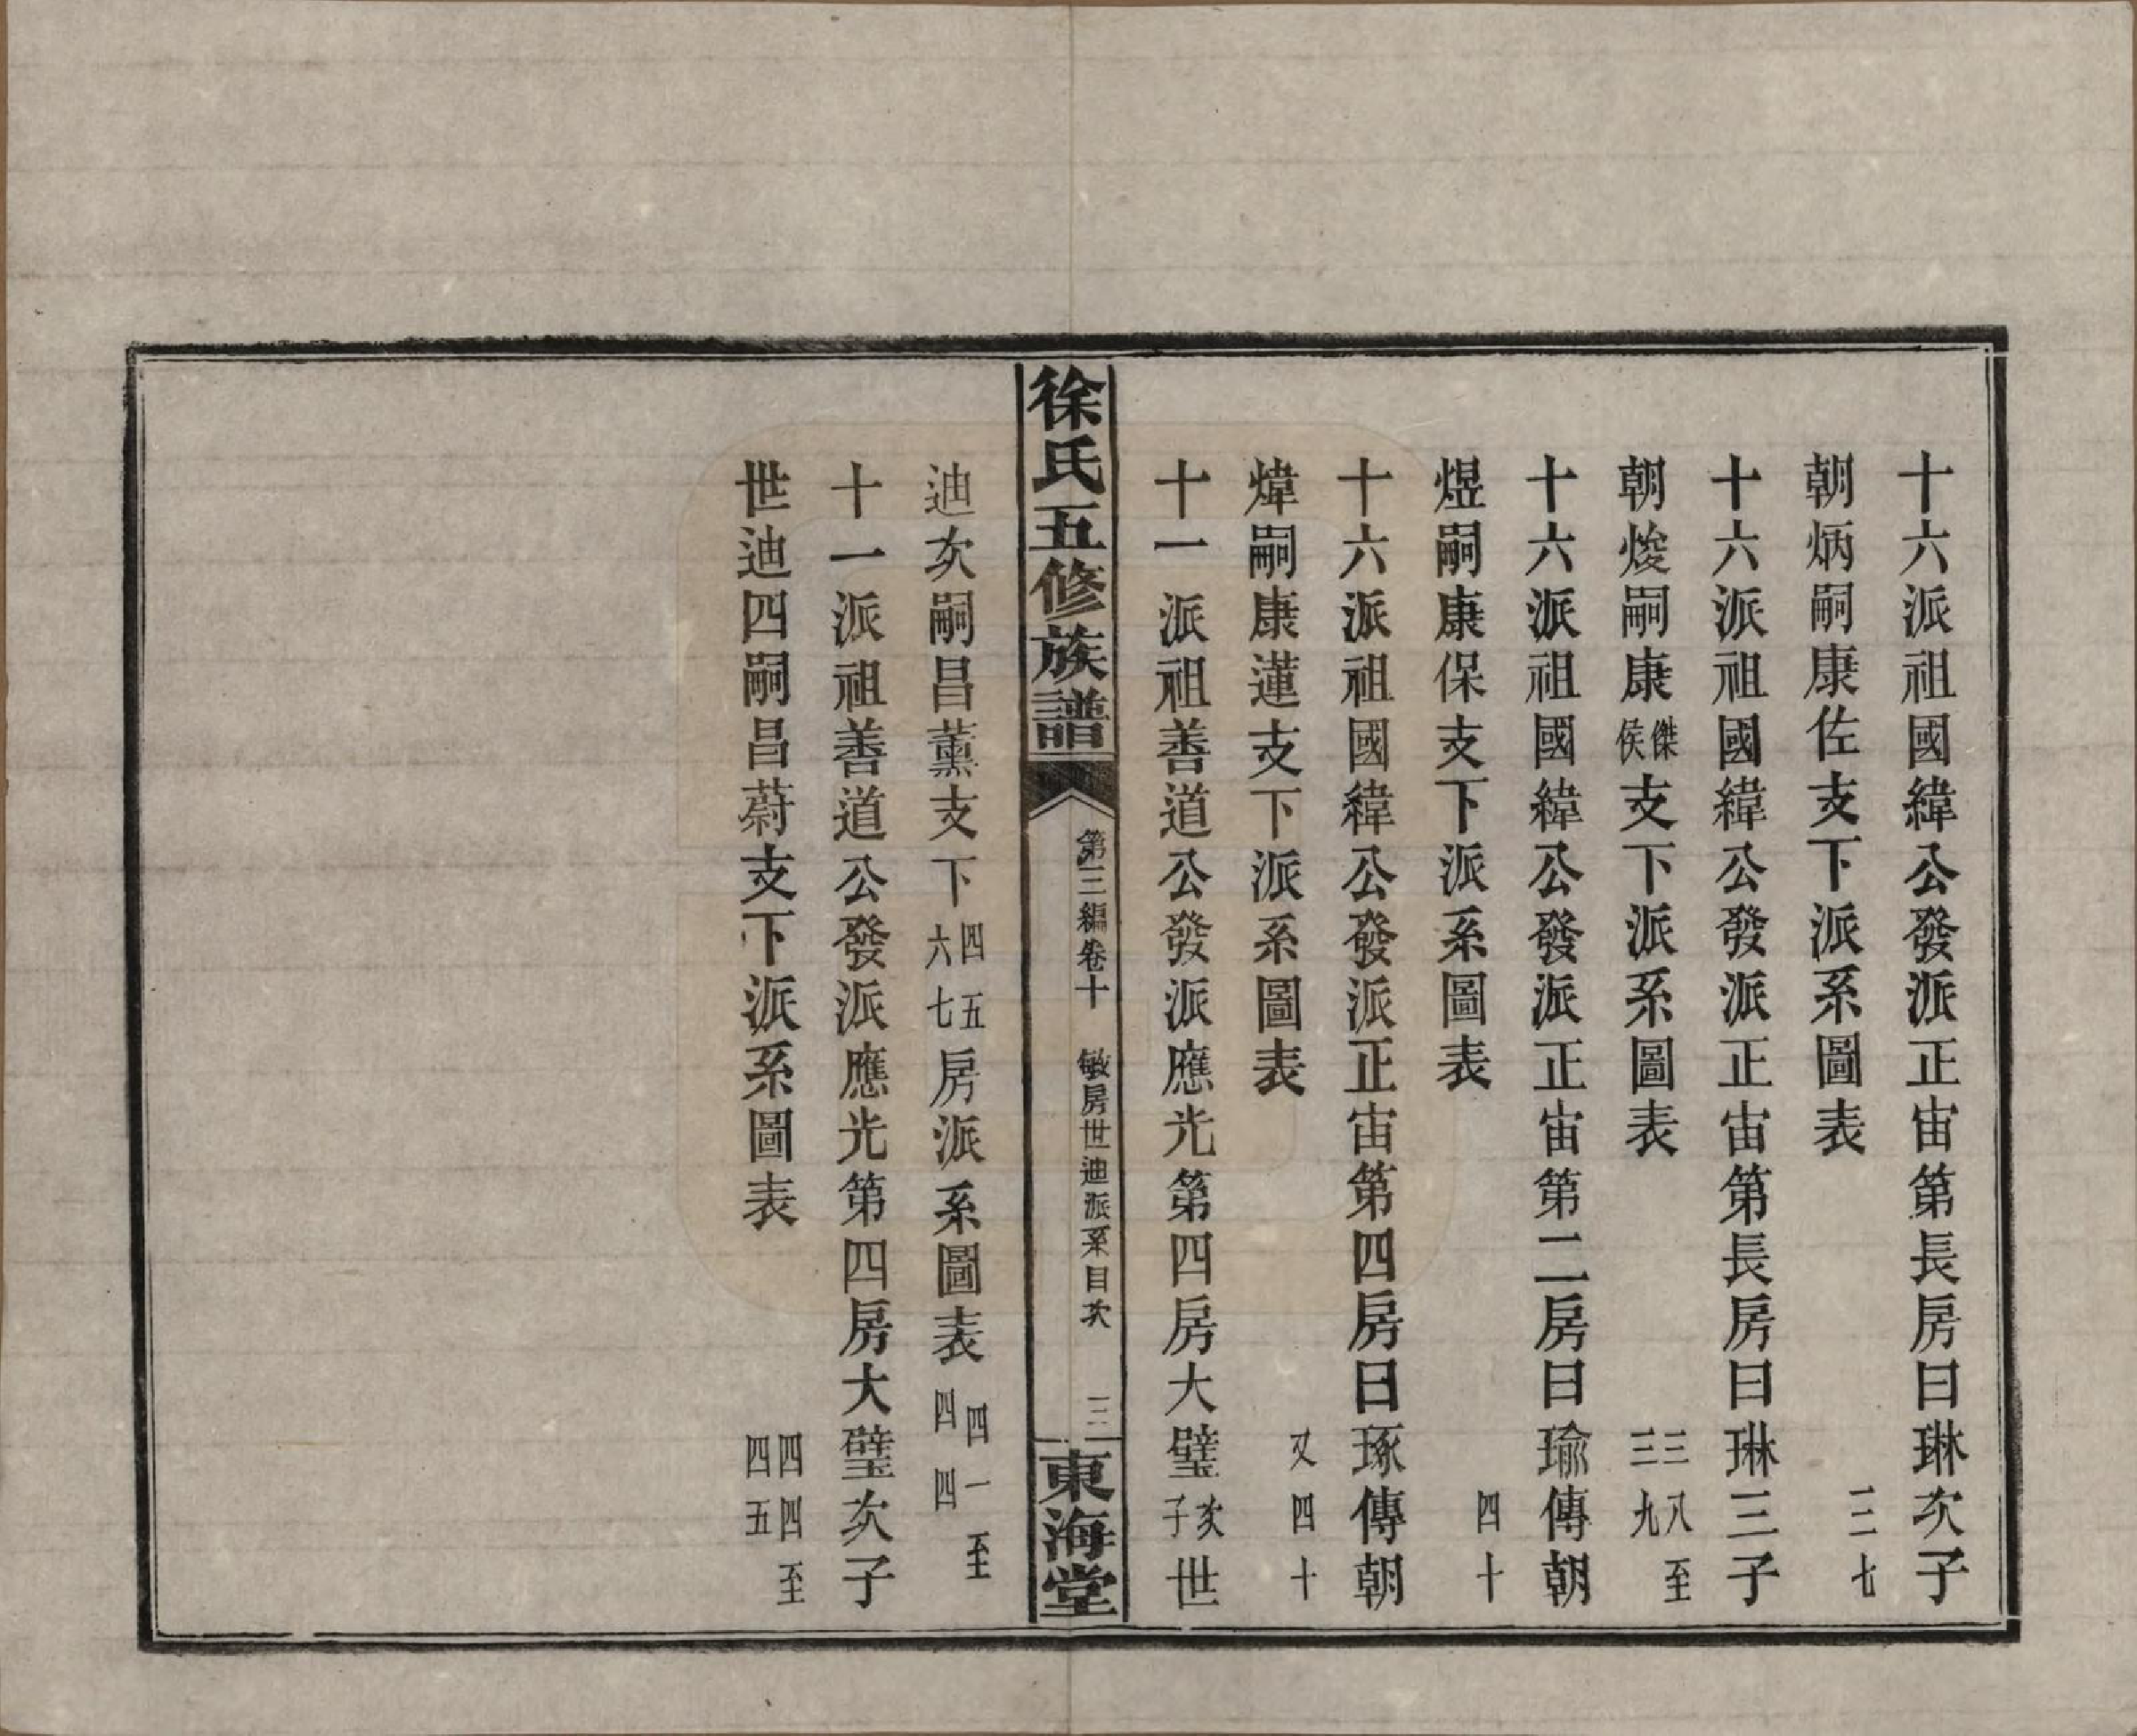 十六派祖國緯公發派正宙第長房曰琳次子
朝炳嗣康佐支下派系圖表 三七
十六派祖國緯公發派正宙第長房曰琳三子
朝焌嗣康傑侯支下派系圖表 三八至三九
十六派祖國緯公發派正宙第二房曰瑜傳朝
煜嗣康保支下派系圖表 四十
十六派祖國緯公發派正宙第四房曰琢傳朝
煒嗣康蓮支下派系圖表 又四十
十一派祖善道公發派應光第四房大璧次子世
徐氏五修族譜 第三編卷十 敏房世迪派系目次 三 東海堂
迪次嗣昌薰支下四五六七房派系圖表 四一至四四
十一派祖善道公發派應光第四房大璧次子
世迪四嗣昌蔚支下派系圖表 四四至四五